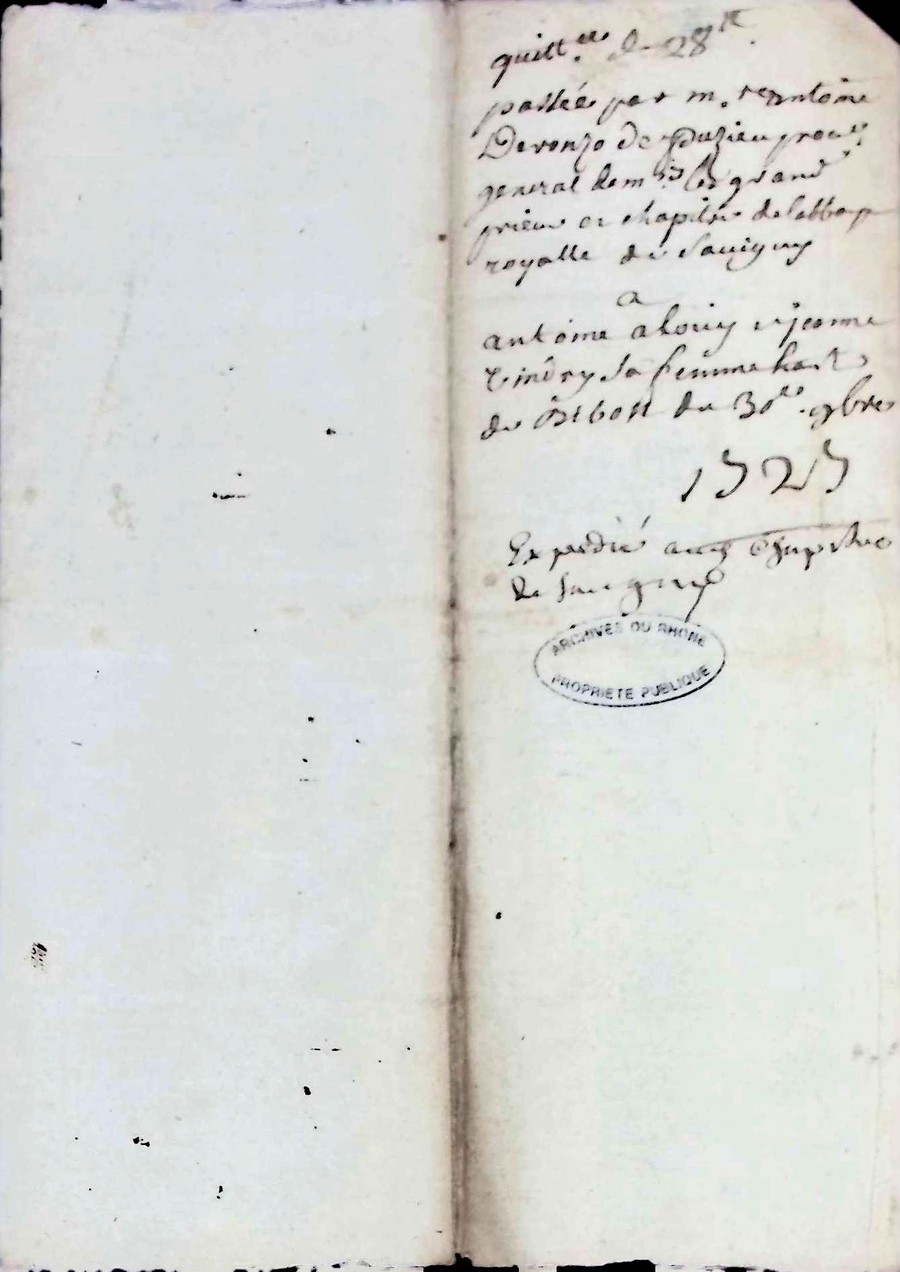 quittce de 28lt
passée par m. re antoine
Deronzo de pouzieu procur
general de mrs les grand
prieur et chapitre de labbaye
royalle de Savigny
a
antoine alouis et jeanne
Vindry sa femme habt
de St bost du 30e 9bre
1727
Expedié aux Chapitre
de Savigny
ARCHIVES DU RHONE
PROPRIETE PUBLIQUE